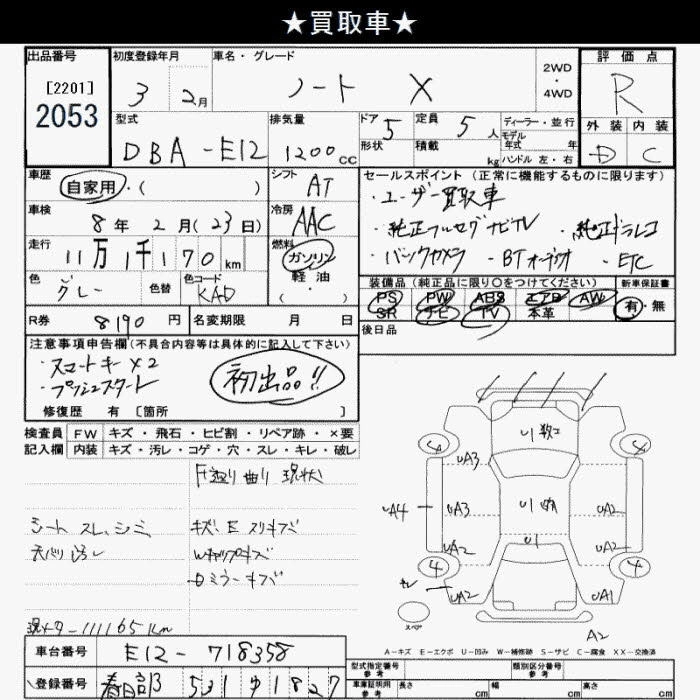 ★買取車★
出品番号 初度登録年月 車名・グレード 2WD・4WD 評価点
[2201]
2053
3 2月 ノート X R
型式 排気量 ドア 5 定員 5人 ディーラー・並行
モデル年式 年
外装 内装
DBA-E12 1200cc 形状 積載 kg ハンドル 左・右 D C
車歴 自家用・( ) シフト AT
セールスポイント(正常に機能するものに限ります)
・ユーザー買取車
車検 8年2月(23日) 冷房 AAC
・純正フルセグナビTV ・純正ドラレコ
走行 11万1千170km 燃料 ガソリン・軽油・( )
・バックカメラ ・BTオーディオ ・ETC
色 グレー 色替 色コード KAD
装備品(純正品に限り○をつけてください) 新車保証書
PS PW ABS エアB AW 有・無
SR ナビ TV 本革
R券 8190円 名変期限 月 日
後日品
注意事項申告欄(不具合内容等は具体的に記入して下さい)
・スマートキー×2
・プッシュスタート
初出品!!
修復歴 有 [箇所 ]
検査員 FW キズ・飛石・ヒビ割・リペア跡・×要
記入欄 内装 キズ・汚レ・コゲ・穴・スレ・キレ・破レ
曲り 現状
シート スレ、シミ
キズ、E スリキズ
天バリ汚レ
Wキャップキズ
ミラーキズ
現メーター111165km
4 4
U1 数コ
UA3
UA4 UA3 U1 UA2
UA2 U1 UA2
4 4
UA2 UA1
スペア
A2
A-キズ E-エクボ U-凹み W-補修跡 S-サビ C-腐食 XX-交換済
車台番号 E12-718358
型式指定番号 参考 類別区分番号 参考
登録番号 春日部 531 ゆ 1827
車庫証明用 参考 長さ cm 幅 cm 高さ cm